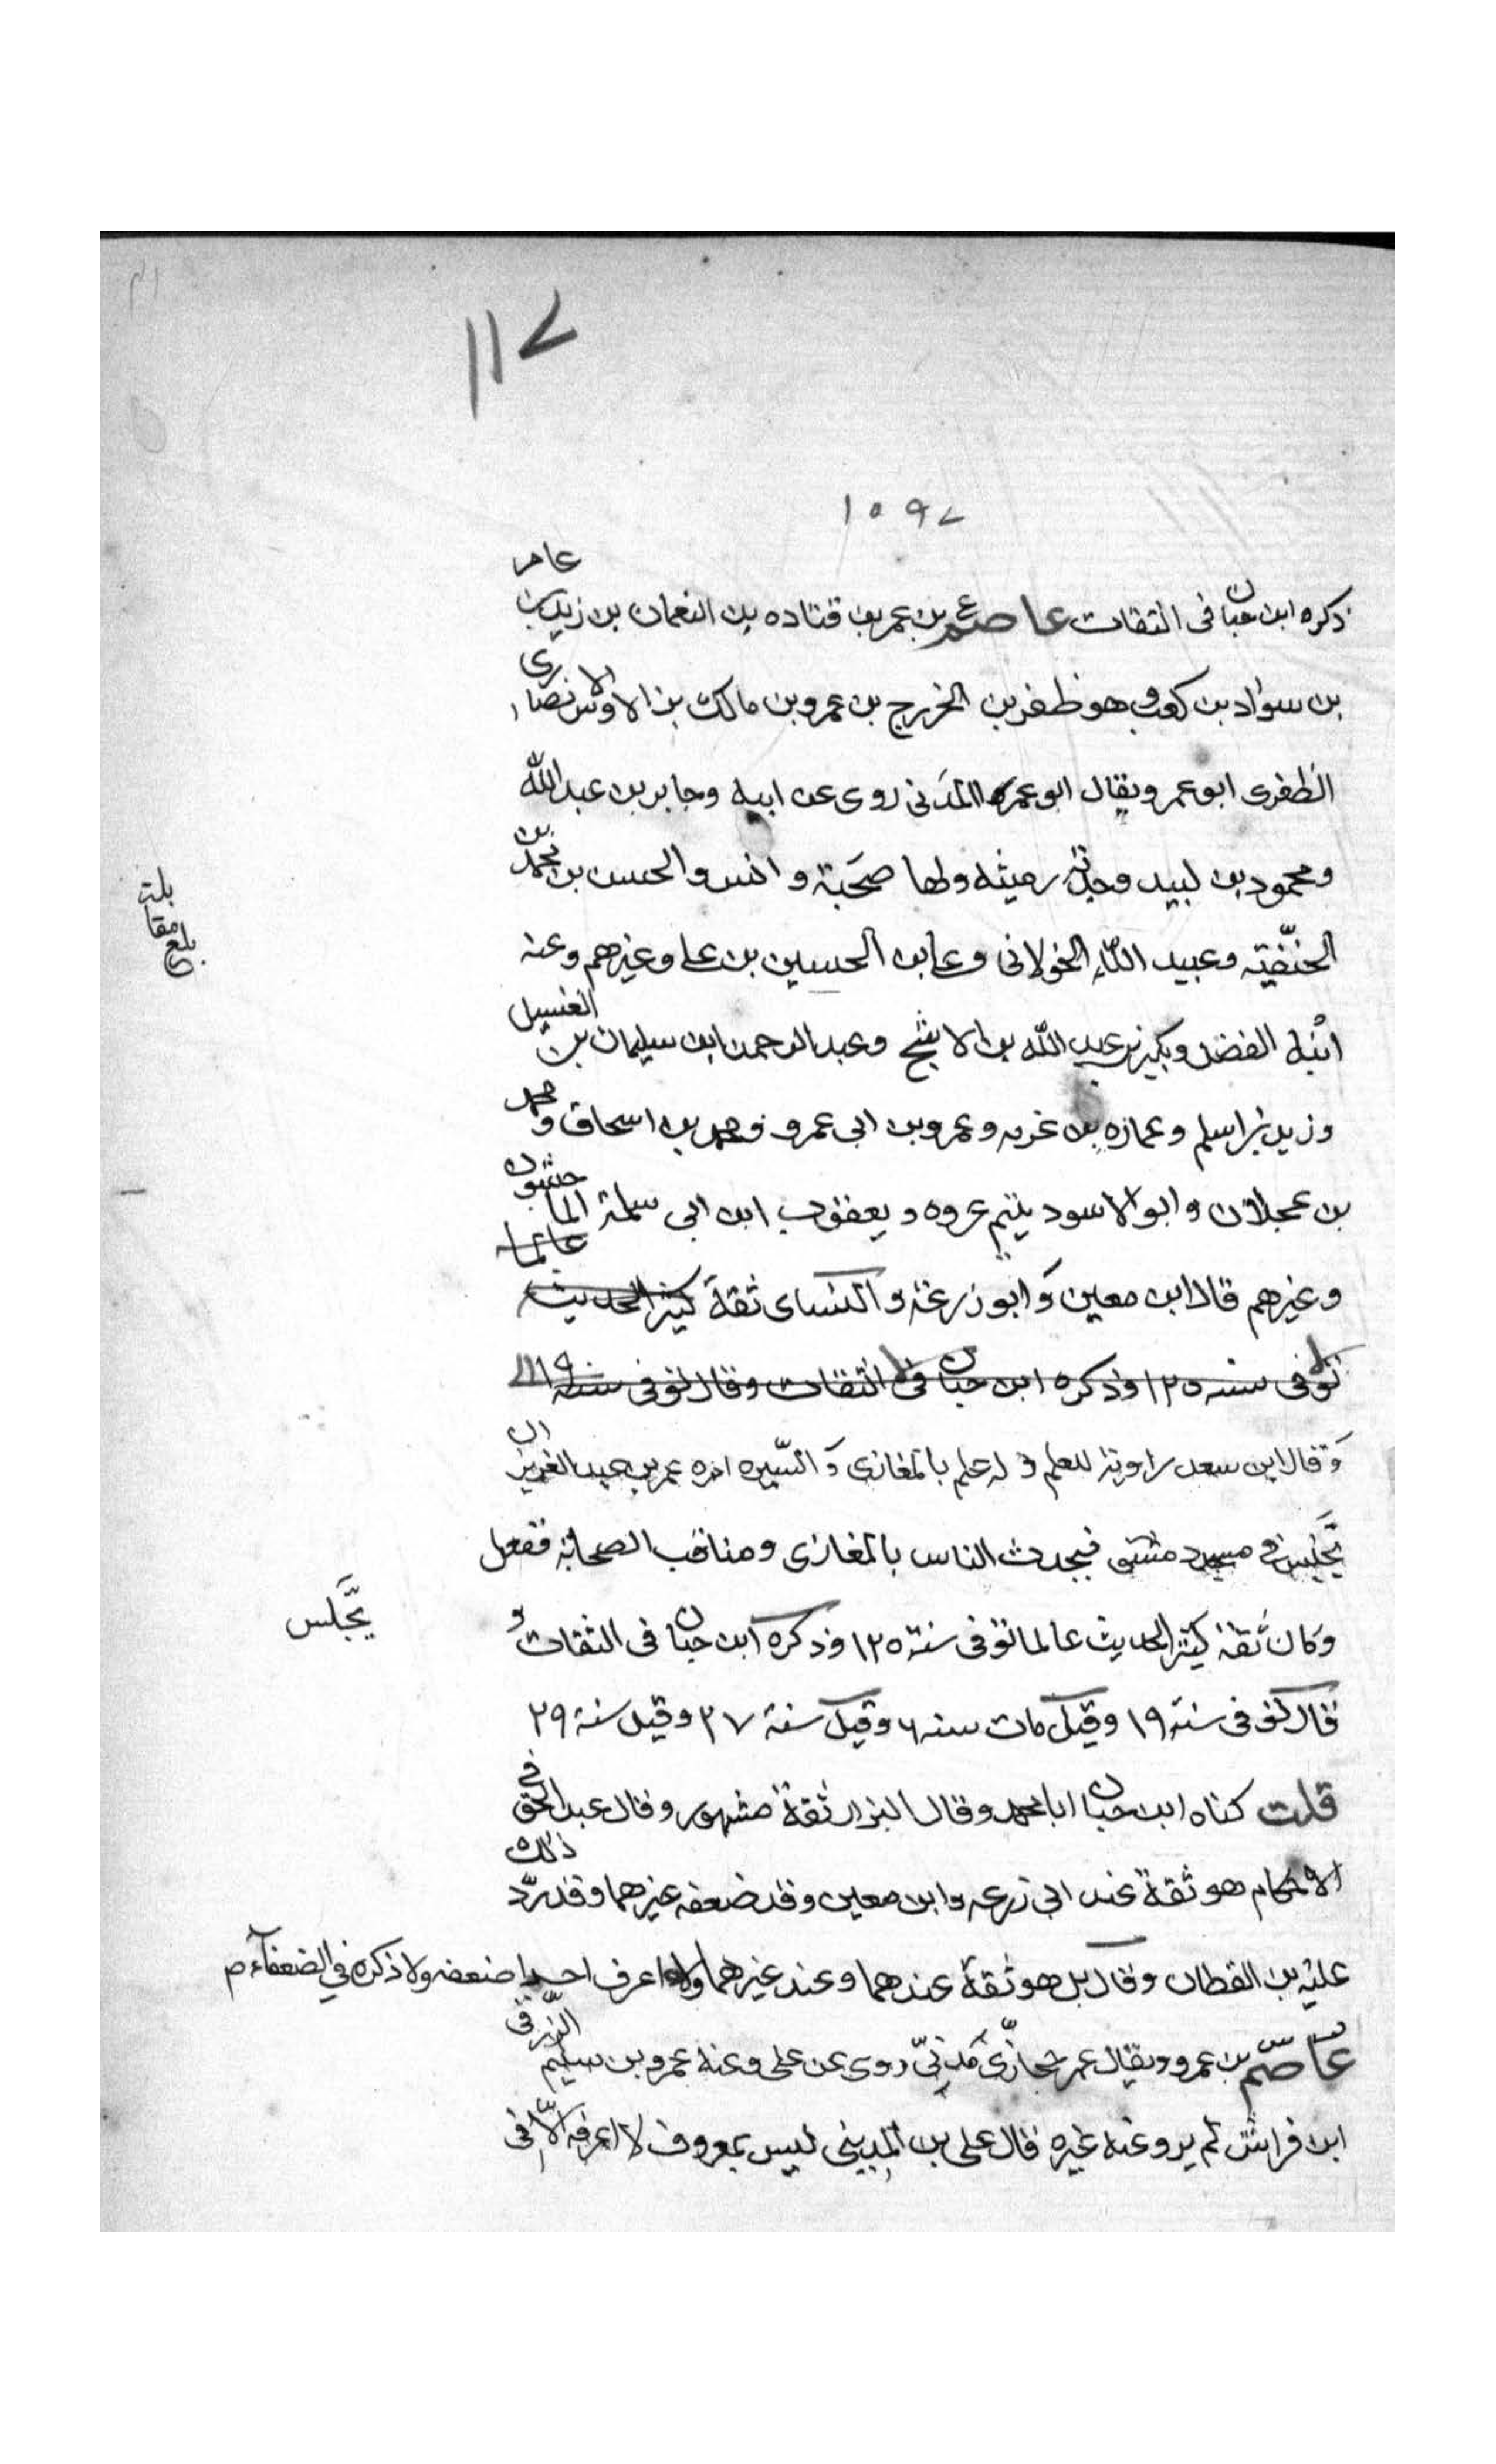 ١١٧
١٥٩٧
ذكره ابن حبان في الثقات عاصم ع بن عمر بن قتاده بن النعمان بن زيد بن عامر
بن سواد بن كعب وهو ظفر بن الخزرج بن عمرو بن مالك بن الاوس الانصارى
الظفرى ابو عمر ويقال ابو عمرو المدني روى عن ابيه وجابر بن عبد الله
ومحمود بن لبيد وجدته رميثه ولها صحبة وانس والحسن بن محمد بن
الحنفية وعبيد الله الخولانى وعلى بن الحسين بن على وغيرهم وعنه
ابنه الفضل وبكير بن عبد الله بن الاشج وعبد الرحمن ابن سليمان بن الغسيل
وزيد بن اسلم وعماره بن غزيه وعمرو بن ابى عمرو ومحمد بن اسحاق ومحمد
بن عجلان وابو الاسود يتيم عروه ويعقوب ابن ابى سلمة الماجشون
وغيرهم قال ابن معين وابو زرعه والنسائى ثقة كثير الحديث عالما
توفى سنه ١٢٥ وذكره ابن حبان فى الثقات وقال توفى سنة ١١٩
وقال ابن سعد راوية للعلم وله علم بالمغازى والسيره امره عمر بن عبد العزيز ان
يجلس فى مسجد دمشق فيحدث الناس بالمغازى ومناقب الصحابة ففعل
وكان ثقة كثير الحديث عالما توفى سنة ١٢٥ وذكره ابن حبان فى الثقات و
يجلس
قال توفى سنة ١٩ وقيل مات سنه ٦ وقيل سنة ٢٧ وقيل سنة ٢٩
قلت كناه ابن حبان ابا محمد وقال البزار ثقة مشهور وقال عبد الحق فى
الاحكام هو ثقة عند ابي زرعه وابن معين وقد ضعفه غيرهما وقد رد ذلك
عليه بن القطان وقال بل هو ثقة عندهما وعند غيرهما ولا اعرف احدا ضعفه ولا ذكره في الضعفاء
عاصم بن عمرو ويقال عمر حجازى مدنى روى عن على وعنه عمرو بن سليم الزرقى
ابن خراش لم يرو عنه غيره قال على بن المدينى ليس بمعروف لا اعرفه الا فى
بلغ مقابلة